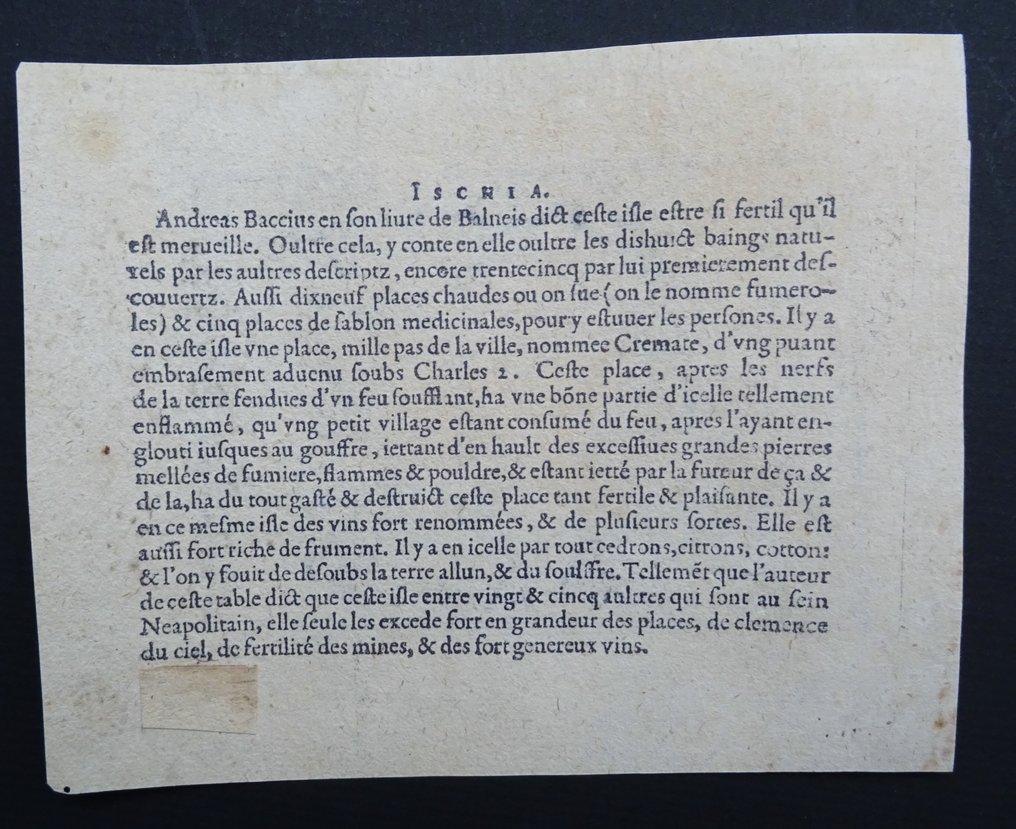 ISCHIA.
Andreas Baccius en ſon liure de Balneis dict ceſte iſle eſtre ſi fertil qu'il
eſt merueille. Oultre cela, y conte en elle oultre les dishuict baings natu-
rels par les aultres deſcriptz, encore trentecincq par lui premierement deſ-
couuertz. Auſſi dixneuf places chaudes ou on ſue (on le nomme fumero-
les) & cinq places de ſablon medicinales, pour y eſtuuer les perſones. Il y a
en ceſte iſle vne place, mille pas de la ville, nommee Cremate, d'vng puant
embraſement aduenu ſoubs Charles 2. Ceſte place, apres les nerfs
de la terre fendues d'vn feu soufflant, ha vne bõne partie d'icelle tellement
enflammé, qu'vng petit village eſtant conſumé du feu, apres l'ayant en-
glouti iuſques au gouffre, iettant d'en hault des exceſſiues grandes pierres
mellées de fumiere, flammes & pouldre, & eſtant ietté par la fureur de ça &
de la, ha du tout gaſté & deſtruict ceſte place tant fertile & plaiſante. Il y a
en ce meſme iſle des vins fort renommées, & de pluſieurs ſortes. Elle eſt
auſſi fort riche de frument. Il y a en icelle par tout cedrons, citrons, cottons
& l'on y fouit de deſoubs la terre allun, & du ſoulffre. Tellemẽt que l'auteur
de ceſte table dict que ceſte iſle entre vingt & cincq aultres qui ſont au ſein
Neapolitain, elle ſeule les excede fort en grandeur des places, de clemence
du ciel, de fertilité des mines, & des fort genereux vins.